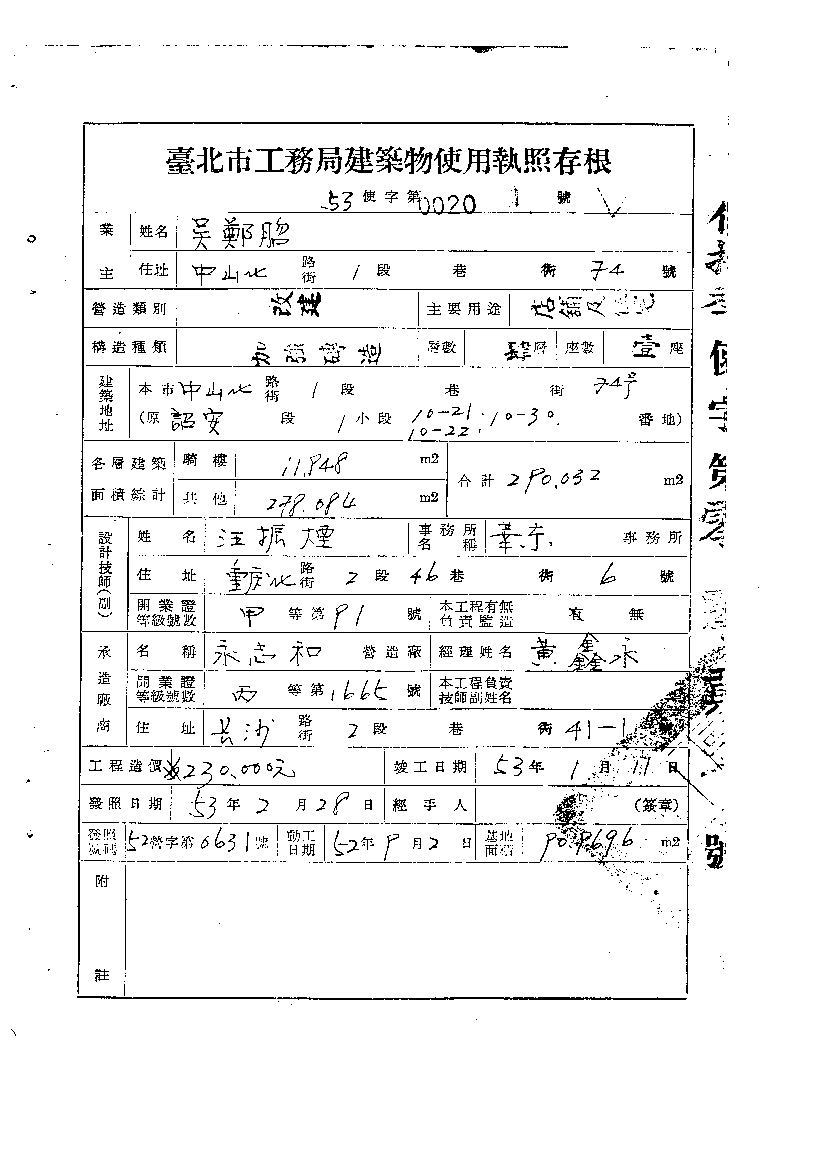 臺北市工務局建築物使用執照存根
53 使字第 0020 1 號
業主 姓名 吳鄭
住址 中山北 路街 1 段 巷 街 74 號
營造類別 改建 主要用途 店舖及住宅
構造種類 加強磚造 層數 肆層 座數 壹座
建築地址 本市中山北 路街 1 段 巷 街 74号
(原 詔安 段 1 小段 10-21.10-30. 10-22. 番地)
各層建築面積綜計 騎樓 11.948 m2 合計 290.032 m2
其他 278.084 m2
設計技師(副) 姓名 汪振煙 事務所名稱 事務所
住址 重慶北 路街 2 段 46 巷 街 6 號
開業證等級號數 甲 等第 91 號 本工程有無負責監造 有 無
承造廠商 名稱 永志和 營造廠 經理姓名 黃鑫永
開業證等級號數 丙 等第 1665 號 本工程負責技師副姓名
住址 長沙 路街 2 段 巷 街 41-1 號
工程造價 ¥230.000元 竣工日期 53 年 1 月 11 日
發照日期 53 年 2 月 28 日 經手人 (簽章)
發照號碼 52營字第 0631 號 動工日期 52 年 9 月 2 日 基地面積 m2
附註
使字第零 號